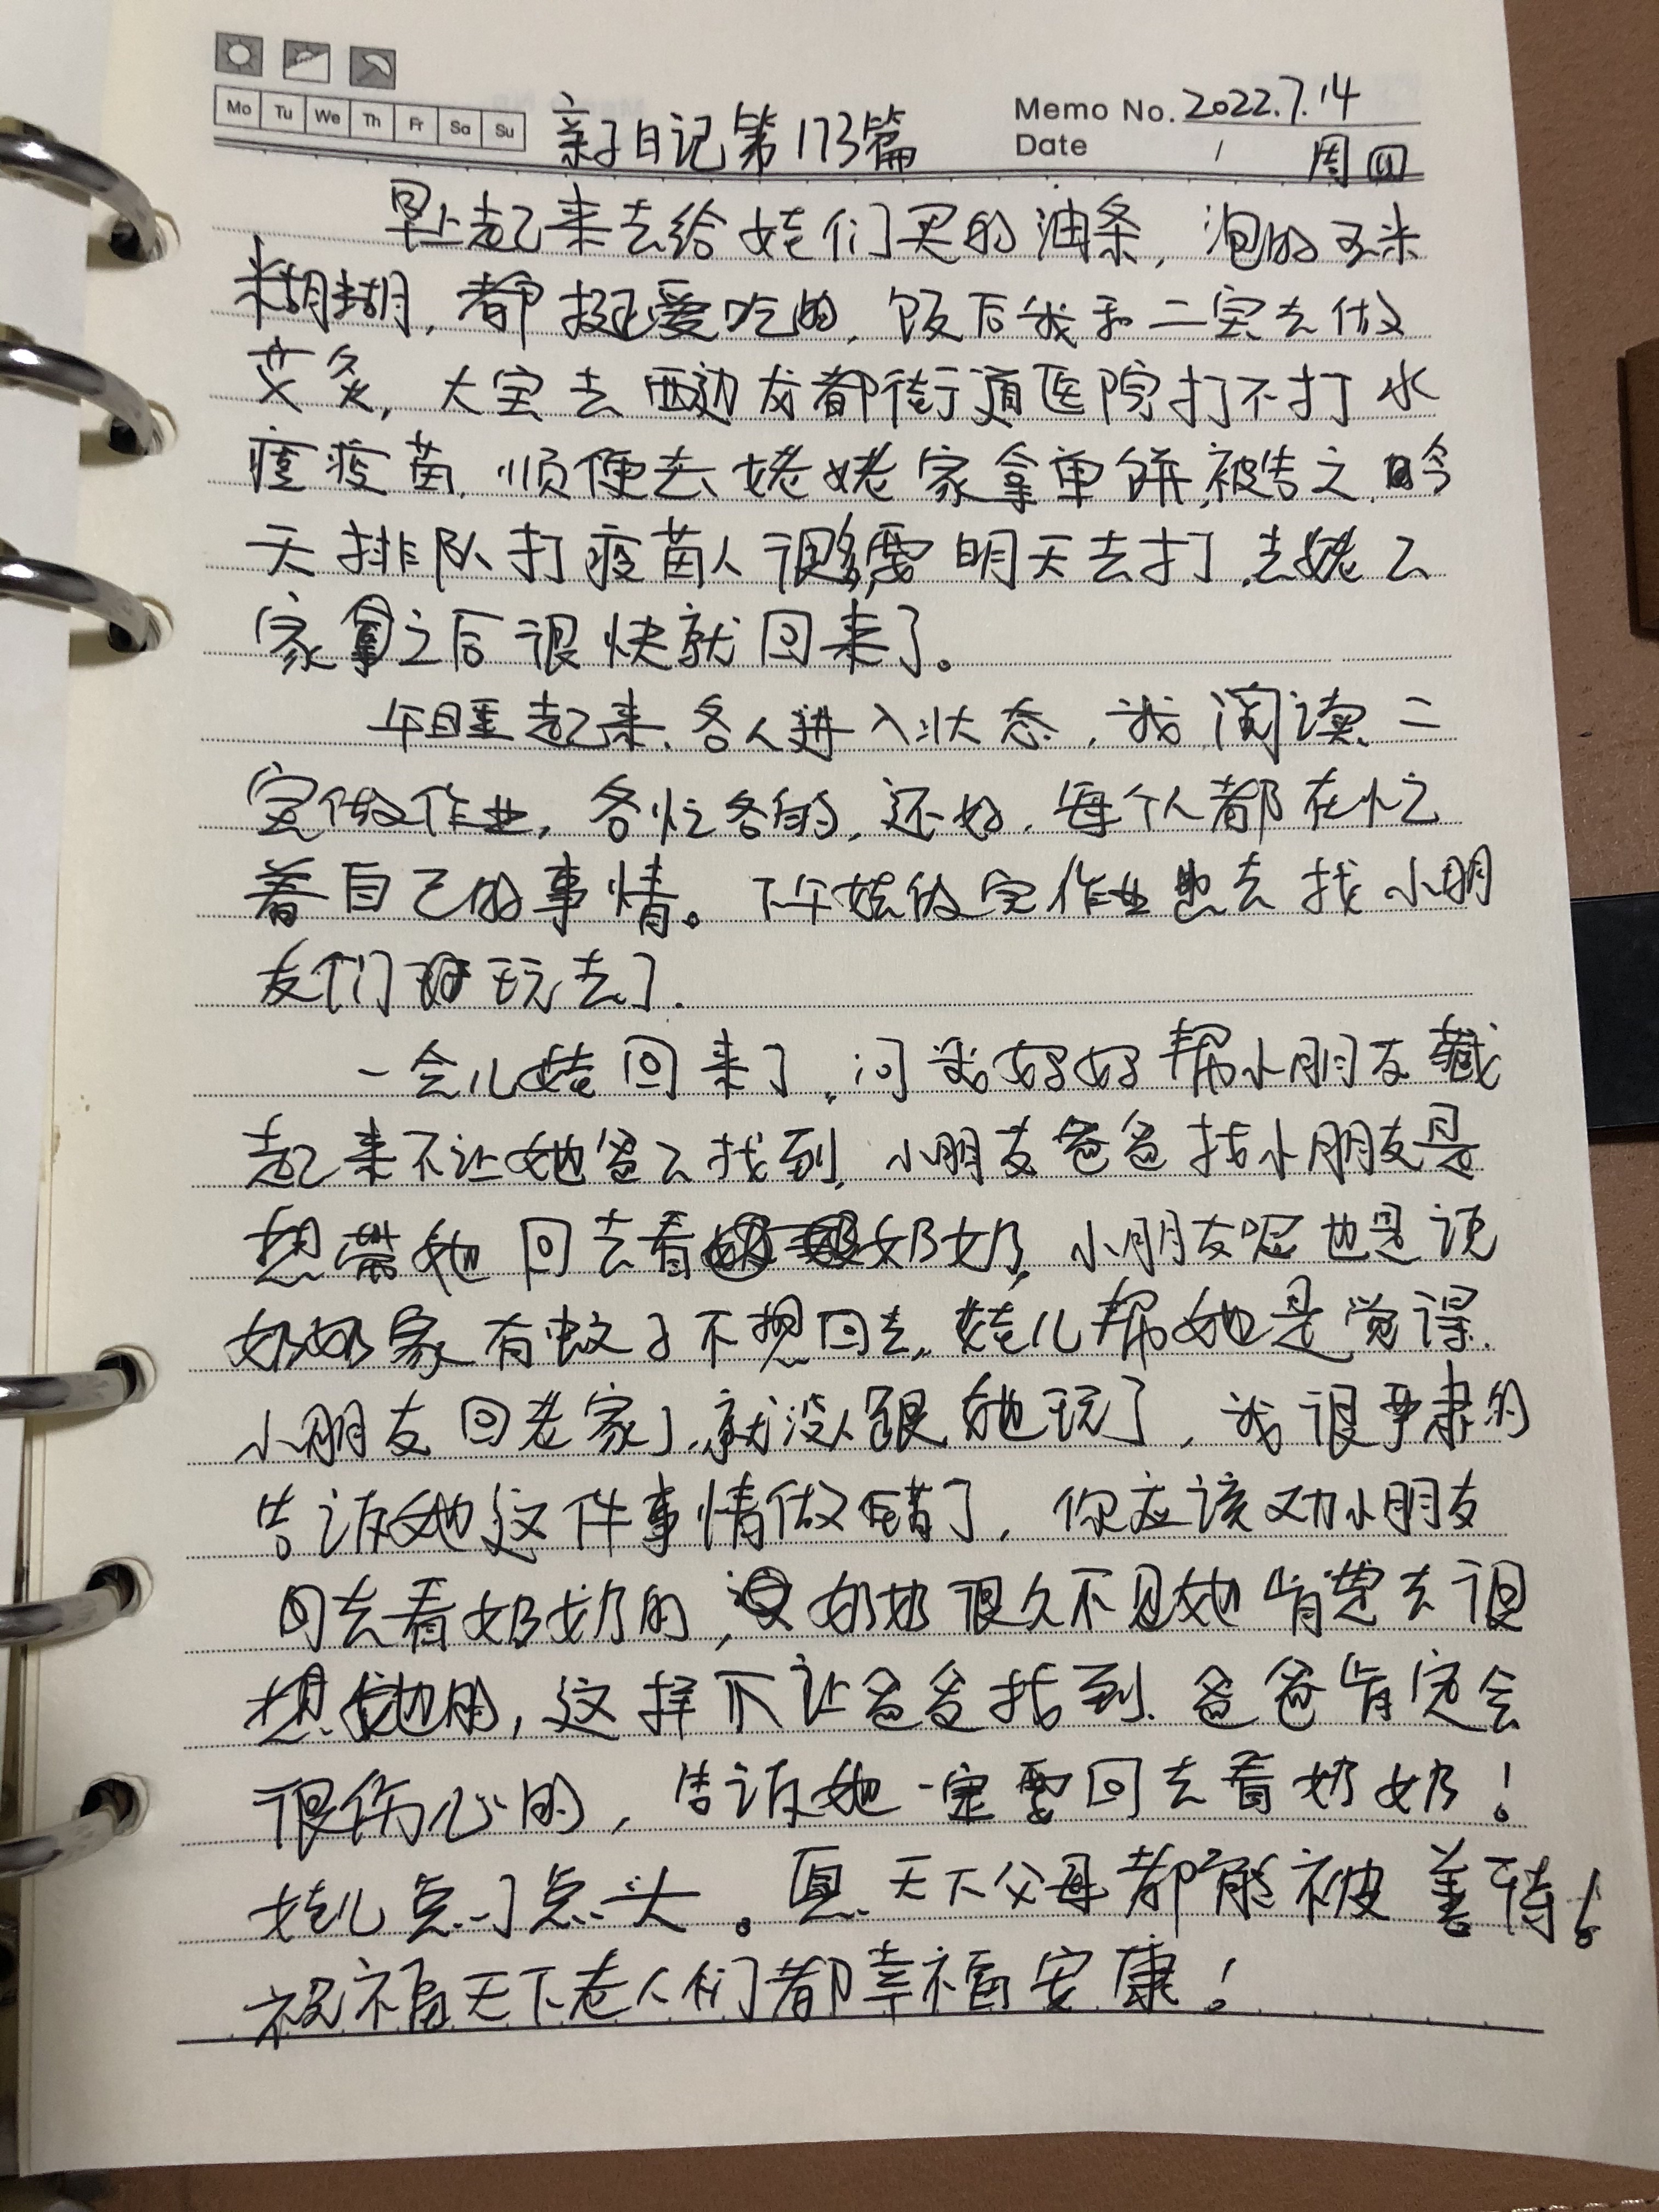 Mo Tu We Th Fr Sa Su
亲子日记第173篇
Memo No. 2022.7.14
Date / 周四
早上起来去给娃们买的油条，泡的玉米
糊糊，都挺爱吃的，饭后我和二宝去做
艾灸，大宝去西边友都街道医院打不打水
痘疫苗，顺便去姥姥家拿单饼，被告之，今
天排队打疫苗人很多，要明天去打，去姥々
家拿之后很快就回来了。
午睡起来，各人进入状态，我阅读，二
宝做作业，各忙各的，还好，每个人都在忙
着自己的事情。下午娃做完作业也去找小朋
友们玩去了．
一会儿娃回来了，问我好好帮小朋友藏
起来不让她爸々找到，小朋友爸爸找小朋友是
想带她回去看奶奶，小朋友呢也是说
奶奶家有蚊子不想回去，娃儿帮她是觉得．
小朋友回老家了，就没人跟她玩了，我很严肃的
告诉她这件事情做错了，你应该劝小朋友
回去看奶奶的，奶奶很久不见她肯定去很
想她的，这样不让爸爸找到，爸爸肯定会
很伤心的，告诉她一定要回去看奶奶！
娃儿点了点头。愿天下父母都能被善待！
祝福天下老人们都幸福安康！